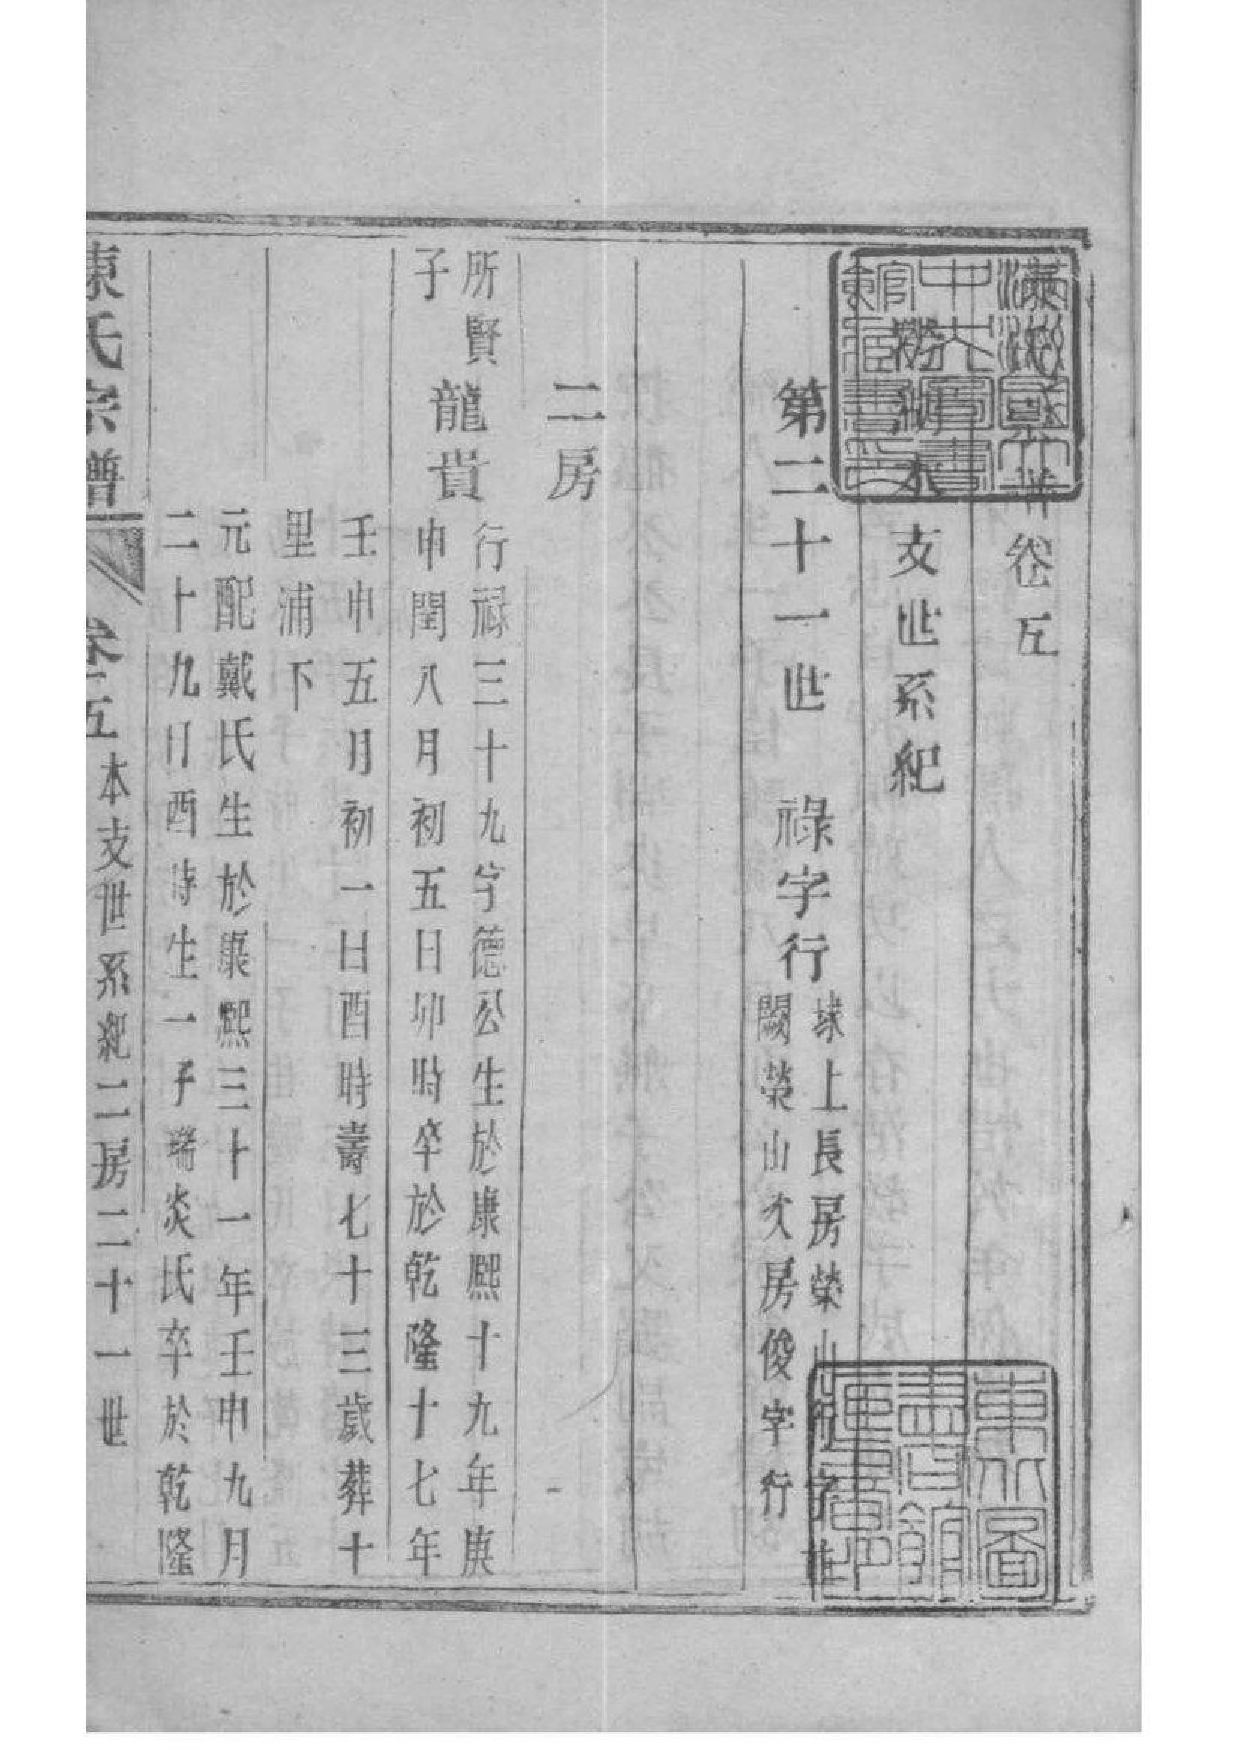 卷五
本支世系紀
第二十一世 祿字行
埭上長房榮山
闕榮山次房俊字行
二房
所賢
子
龍貲
行祿三十九字德公生於康熙十九年庚
申閏八月初五日卯時卒於乾隆十七年
壬申五月初一日酉時壽七十三歲葬十
里浦下
元配戴氏生於康熙三十一年壬申九月
二十九日酉時生一子瑞炎氏卒於乾隆
陳氏宗譜
卷五 本支世系紀二房二十一世
東北圖書館